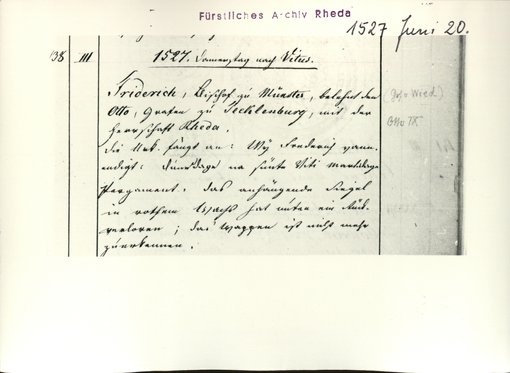 Fürstliches Archiv Rheda
1527 Juni 20.
138 III 1527. Donnerstag nach Vitus.
Friderich, Bischof zu Münster, belehnt den (gf. v. Wied)
Otto, Grafen zu Tecklenburg, mit der Otto IX
Herrschaft Rheda.
die Urk. fängt an: Wy Frederich von
endigt: dunsdage na sünte Viti
Pergament. das anhängende Siegel
in rothem Wachs hat unten ein
verloren; das Wappen ist nicht mehr
zuerkennen.